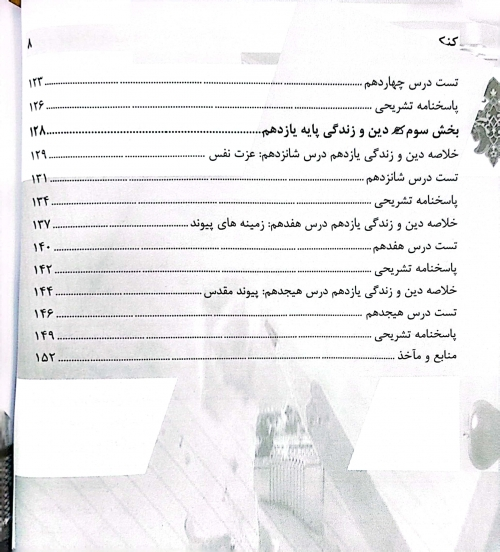 کنکا ۸
تست درس چهاردهم ۱۲۳
پاسخنامه تشریحی ۱۲۶
بخش سوم دین و زندگی پایه یازدهم ۱۲۸
خلاصه دین و زندگی یازدهم درس شانزدهم: عزت نفس ۱۲۹
تست درس شانزدهم ۱۳۱
پاسخنامه تشریحی ۱۳۴
خلاصه دین و زندگی یازدهم درس هفدهم: زمینه های پیوند ۱۳۷
تست درس هفدهم ۱۴۰
پاسخنامه تشریحی ۱۴۲
خلاصه دین و زندگی یازدهم درس هیجدهم: پیوند مقدس ۱۴۴
تست درس هیجدهم ۱۴۶
پاسخنامه تشریحی ۱۴۹
منابع و مآخذ ۱۵۲